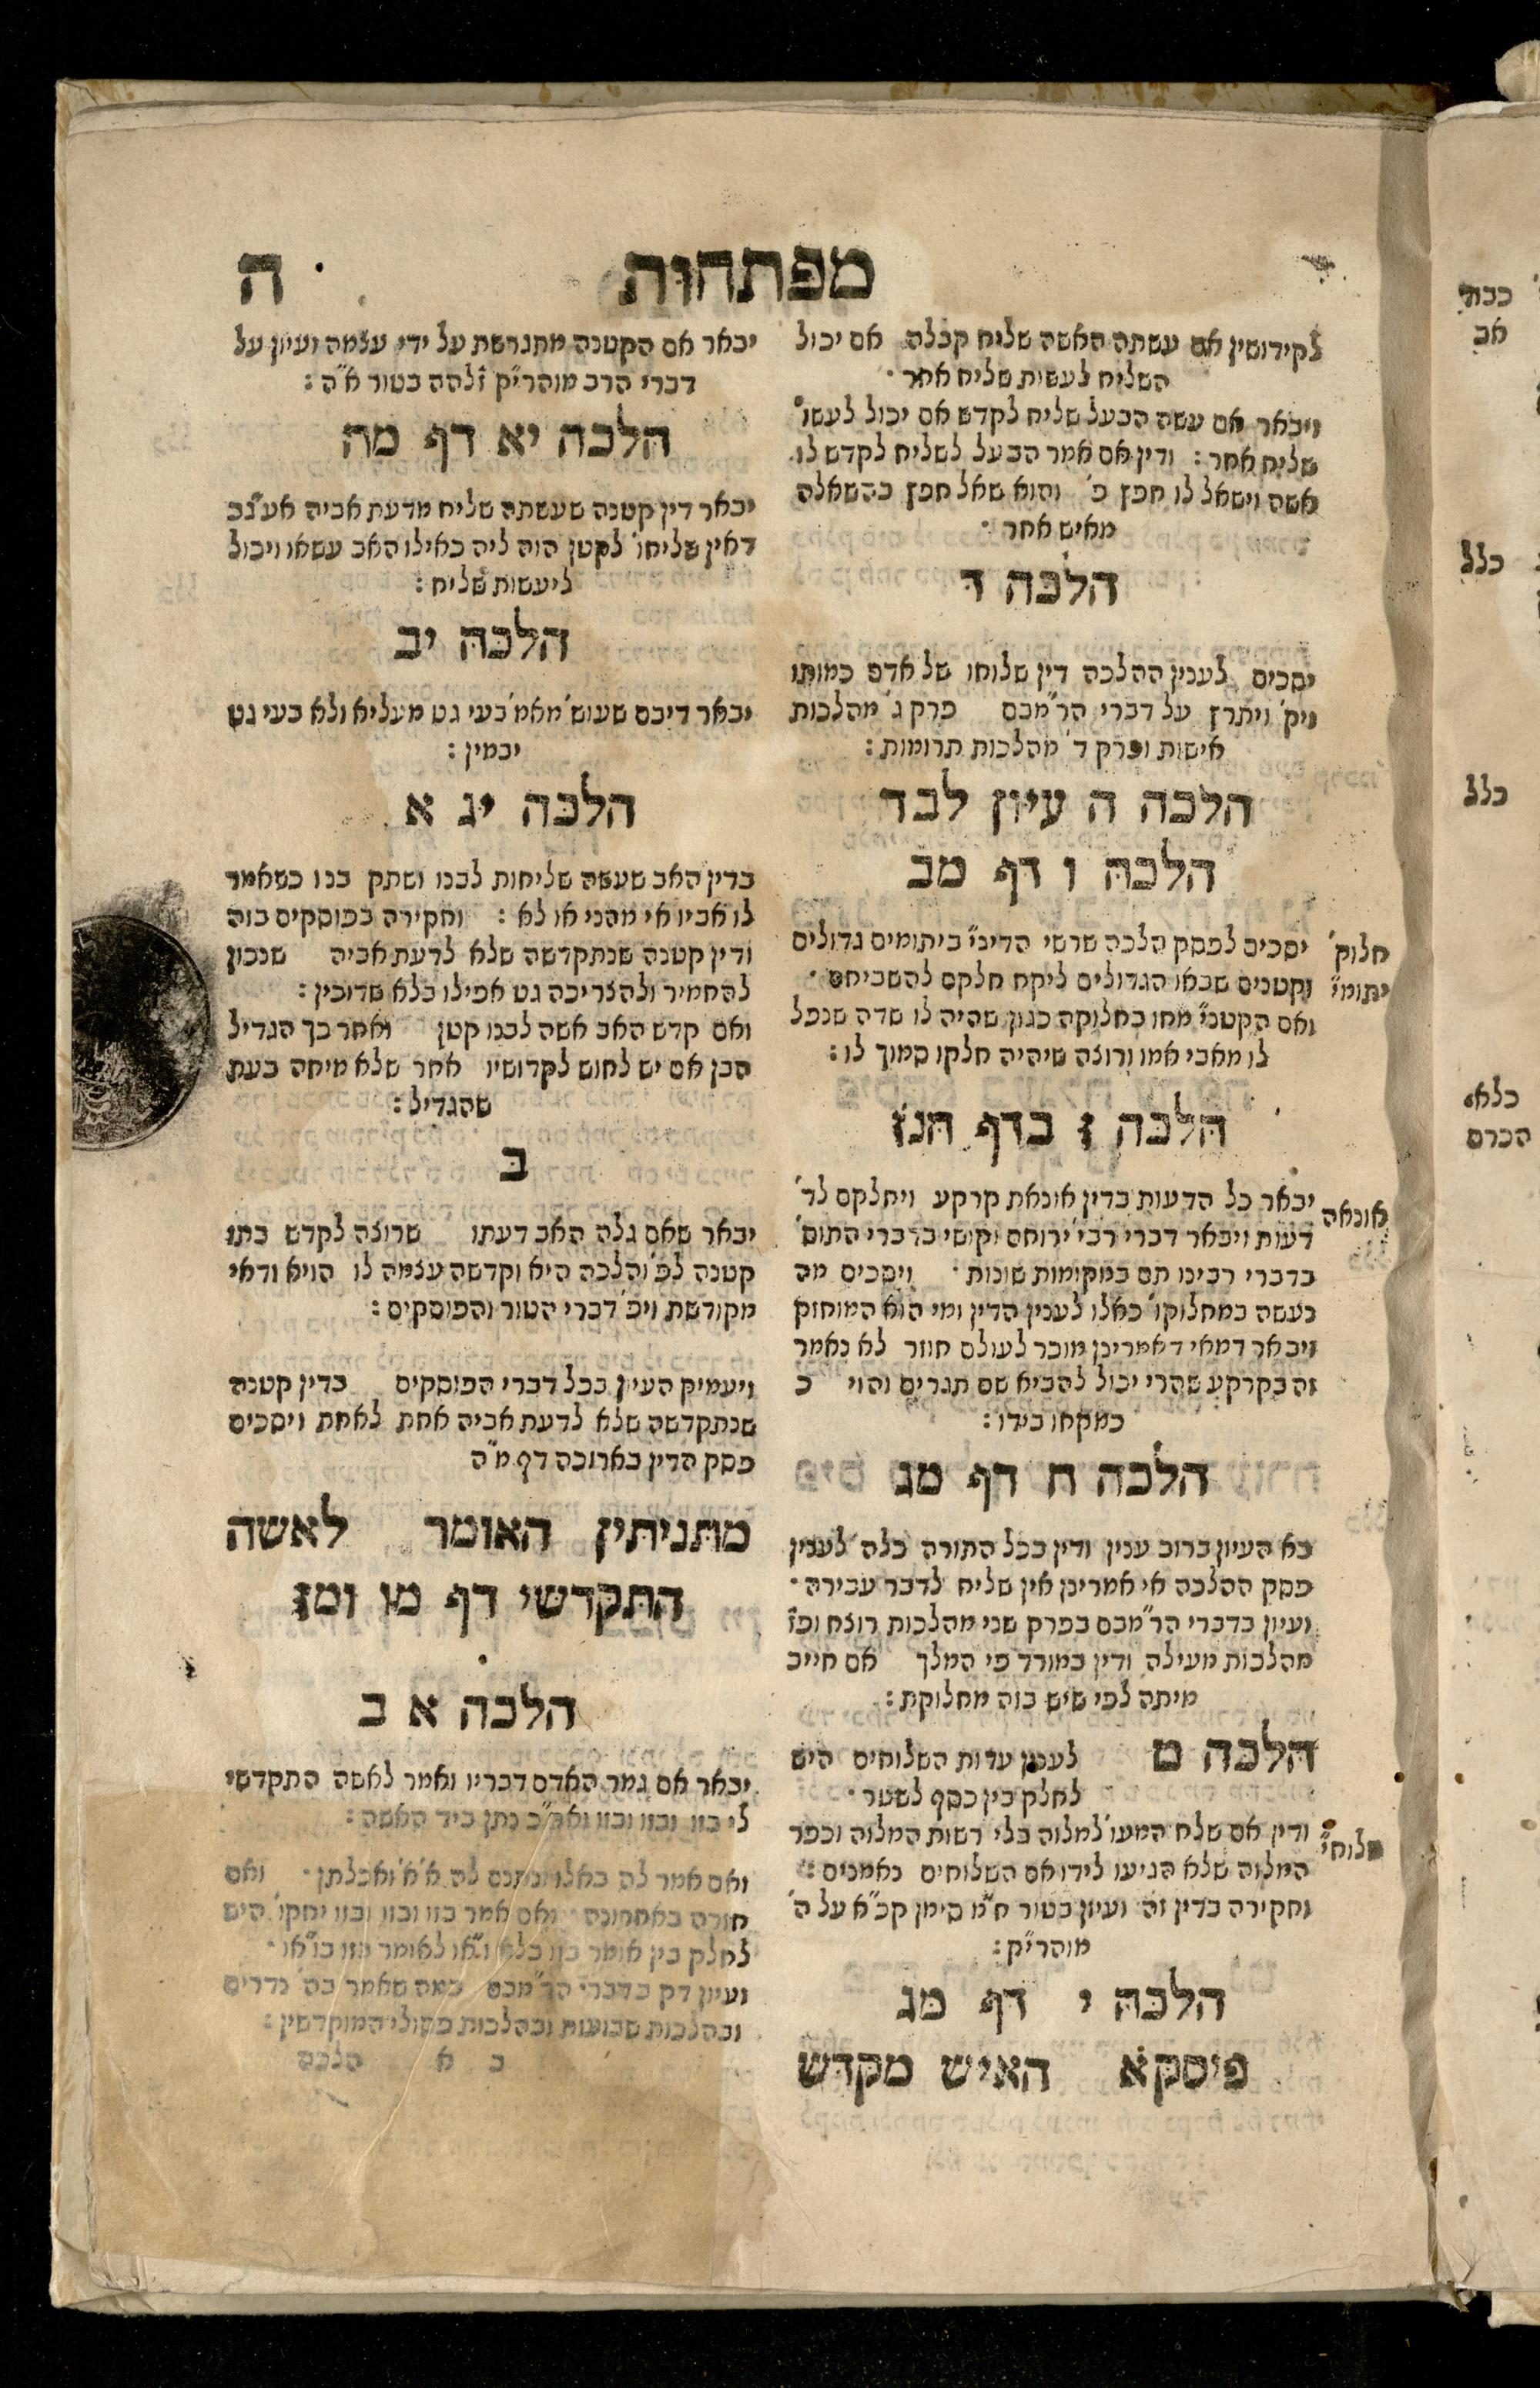 מפתחות ה
לקידושין אם עשתה האשה שליח קבלה אם יכול
השליח לעשות שליח אחר·
ויבאר אם עשה הבעל שליח לקדש אם יכול לעשו'
שליח אחר: ודין אם אמר הבעל לשליח לקדש לו
אשה וישאל לו חפץ פ' והוא שאל חפץ בהשאלה
מאיש אחר·
הלכה ד
יסכים לענין ההלכה דין שלוחו של אדם כמותו
ויק' ויתרץ על דברי הר"מבם פרק ג' מהלכות
אישות ופרק ד' מהלכות תרומות:
הלכה ה עיון לבד
הלכה ו דף מב
חלוק'
יתומי"
יסכים לפסק הלכה שרשי הדיני" ביתומים גדולים
וקטנים שבאו הגדולים ליקח חלקם להשביחם·
ואם הקטני" מחו בחלוקה כגון שהיה לו שדה שנפל
לו מאבי אמו ורוצה שיהיה חלקו סמוך לו:
הלכה ז בדף הנז
אונאה
יבאר כל הדעות בדין אונאת קרקע ויחלקם לד'
דעות ויבאר דברי רבי' ירוחם וקושי בדברי התוס'
בדברי רבינו תם במקומות שונות· ויסכים מה
נעשה במחלוקו' כאלו לענין הדין ומי הוא המוחזק
ויבאר דמאי דאמרינן מוכר לעולם חוזר לא נאמר
זה בקרקע שהרי יכול להביא שם תגרים והוי כ
כמקחו בידו:
הלכה ח דף מג
בא העיון ברוב ענין ודין בכל התורה כלה לענין
פסק ההלכה אי אמרינן אין שליח לדבר עבירה·
ועיון בדברי הר"מבם בפרק שני מהלכות רוצח ופז
מהלכות מעילה ודין במורד פי המלך אם חייב
מיתה לפי שיש בזה מחלוקת:
הלכה ט לענין עדות השלוחים היש
לחלק בין כסף לשטר·
שלוחי"
ודין אם שלח המעו' למלוה בלי רשות המלוה וכפר
המלוה שלא הגיעו לידו אם השלוחים נאמנים:
וחקירה בדין זה ועיון בטור ח"מ סימן קכ"א על ה'
מוהרי"ק:
הלכה י דף מג
פיסקא האיש מקדש
יבאר אם הקטנה מתגרשת על ידי עצמה ועיון על
דברי הרב מוהרי"ק זלהה בטור א"ה:
הלכה יא דף מה
יבאר דין קטנה שעשתה שליח מדעת אביה אע"גב
דאין שליחו' לקטן הוה ליה כאילו האב עשאו ויכול
ליעשות שליח:
הלכה יב
יבאר דיבם שעוש' מאמ' בעי גט מעליא ולא בעי גט
יבמין:
הלכה יג א
בדין האב שעשה שליחות לבנו ושתק בנו כשאמר
לו אביו אי מהני או לא: וחקירה בפוסקים בזה
ודין קטנה שנתקדשה שלא לדעת אביה שנכון
להחמיר ולהצריכה גט אפילו בלא שדוכין:
ואם קדש האב אשה לבנו קטן ואחר כך הגדיל
הבן אם יש לחוש לקדושיו אחר שלא מיחה בעת
שהגדיל:
ב
יבאר שאם גלה האב דעתו שרוצה לקדש בתו
קטנה לפ' והלכה היא וקדשה עצמה לו הויא ודאי
מקודשת ויפ' דברי הטור והפוסקים:
ויעמיק העיון בכל דברי הפוסקים בדין קטנה
שנתקדשה שלא לדעת אביה אחת לאחת ויסכים
פסק הדין בארוכה דף מ"ה
מתניתין האומר לאשה
התקדשי דף מו ומז
הלכה א ב
יבאר אם גמר האדם דבריו ואמר לאשה התקדשי
לי בזו ובזו ובזו ואח"כ נתן ביד האשה:
ואם אמר לה באלו ונתנם לה א'א' ואכלתן· ואם
חזרה באחרונה ואם אמר בזו ובזו ובזו יחקו' היש
לחלק בין אומר בזו בלא וא"ו לאומר בזו בוא"ו·
ועיון דק בדברי הר"מבם במה שאמר בה' נדרים
ובהלכות שבועות ובהלכות פסולי המוקדשין:
כ א הלכה
ככתי
אב
כלל
כלל
כלאי
הכרם